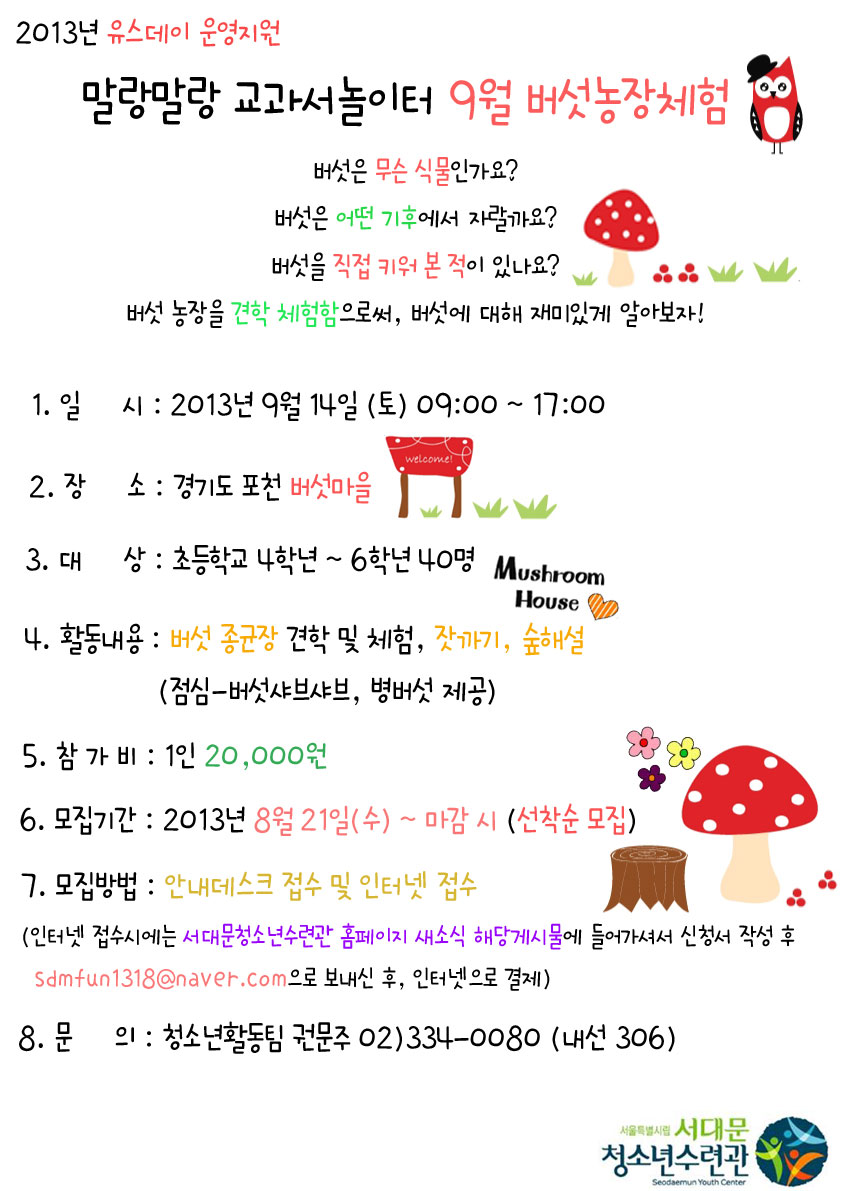 2013년 유스데이 운영지원
말랑말랑 교과서놀이터 9월 버섯농장체험
버섯은 무슨 식물인가요?
버섯은 어떤 기후에서 자랄까요?
버섯을 직접 키워 본 적이 있나요?
버섯 농장을 견학 체험함으로써, 버섯에 대해 재미있게 알아보자!
1. 일 시 : 2013년 9월 14일 (토) 09:00 ~ 17:00
welcome!
2. 장 소 : 경기도 포천 버섯마을
3. 대 상 : 초등학교 4학년 ~ 6학년 40명
Mushroom
House
4. 활동내용 : 버섯 종균장 견학 및 체험, 잣까기, 숲해설
(점심-버섯샤브샤브, 병버섯 제공)
5. 참 가 비 : 1인 20,000원
6. 모집기간 : 2013년 8월 21일(수) ~ 마감 시 (선착순 모집)
7. 모집방법 : 안내데스크 접수 및 인터넷 접수
(인터넷 접수시에는 서대문청소년수련관 홈페이지 새소식 해당게시물에 들어가셔서 신청서 작성 후
sdmfun1318@naver.com으로 보내신 후, 인터넷으로 결제)
8. 문 의 : 청소년활동팀 권문주 02)334-0080 (내선 306)
서울특별시립 서대문
청소년수련관
Seodaemun Youth Center